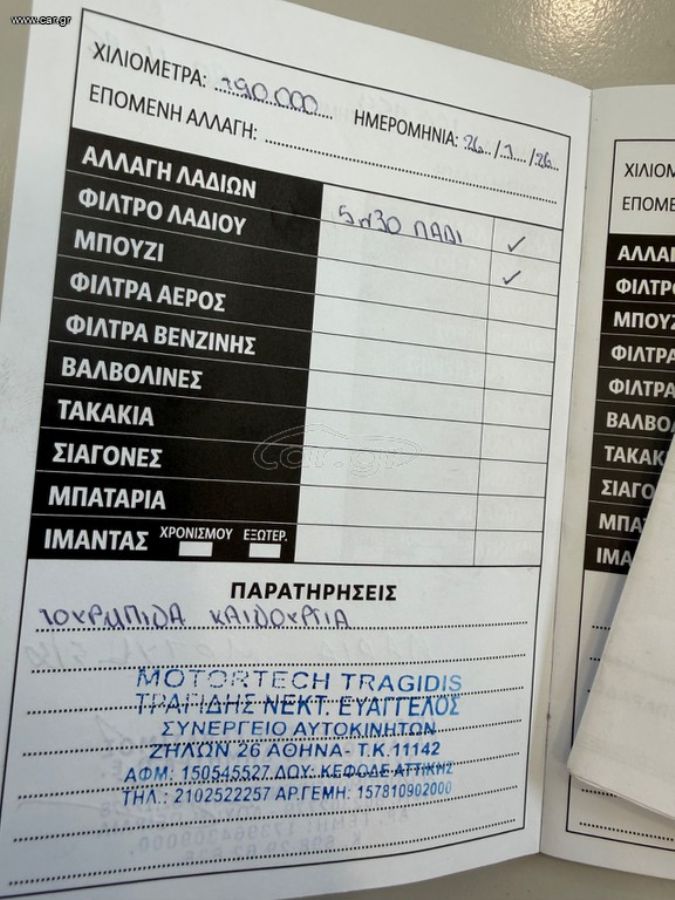 www.car.gr
ΧΙΛΙΟΜΕΤΡΑ: 190.000 ΗΜΕΡΟΜΗΝΙΑ: 26/1/26
ΕΠΟΜΕΝΗ ΑΛΛΑΓΗ:
ΑΛΛΑΓΗ ΛΑΔΙΩΝ 5n30 ΛΑΔΙ ✓
ΦΙΛΤΡΟ ΛΑΔΙΟΥ ✓
ΜΠΟΥΖΙ
ΦΙΛΤΡΑ ΑΕΡΟΣ
ΦΙΛΤΡΑ ΒΕΝΖΙΝΗΣ
ΒΑΛΒΟΛΙΝΕΣ
ΤΑΚΑΚΙΑ
ΣΙΑΓΟΝΕΣ
ΜΠΑΤΑΡΙΑ
ΙΜΑΝΤΑΣ ΧΡΟΝΙΣΜΟΥ ΕΞΩΤΕΡ.
car.gr
ΠΑΡΑΤΗΡΗΣΕΙΣ
ΤΟΥΡΜΠΙΝΑ ΚΑΙΝΟΥΡΓΙΑ
MOTORTECH TRAGIDIS
ΤΡΑΓΙΔΗΣ ΝΕΚΤ. ΕΥΑΓΓΕΛΟΣ
ΣΥΝΕΡΓΕΙΟ ΑΥΤΟΚΙΝΗΤΩΝ
ΖΗΛΩΝ 26 ΑΘΗΝΑ- Τ.Κ.11142
ΑΦΜ: 150545527 ΔΟΥ: ΚΕΦΟΔΕ ΑΤΤΙΚΗΣ
ΤΗΛ.: 2102522257 ΑΡ.ΓΕΜΗ: 157810902000
ΧΙΛΙΟΜ
ΕΠΟΜΕ
ΑΛΛΑΓ
ΦΙΛΤΡΟ
ΜΠΟΥΖ
ΦΙΛΤΡΑ
ΦΙΛΤΡΑ
ΒΑΛΒΟ
ΤΑΚΑΚ
ΣΙΑΓΟ
ΜΠΑΤ
ΙΜΑ